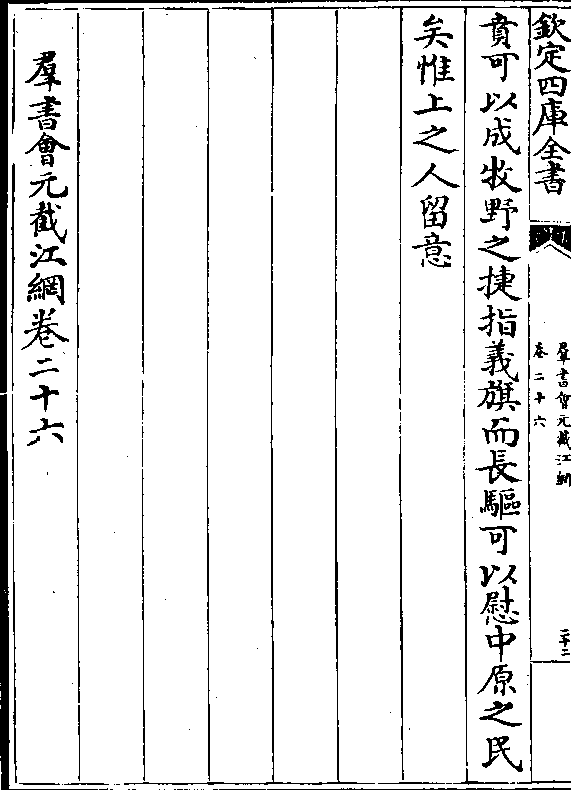 欽定四庫全書
羣書會元截江網
卷二十六
三十二
賁可以成牧野之捷指義旗而長驅可以慰中原之民
矣惟上之人留意
羣書會元截江網卷二十六